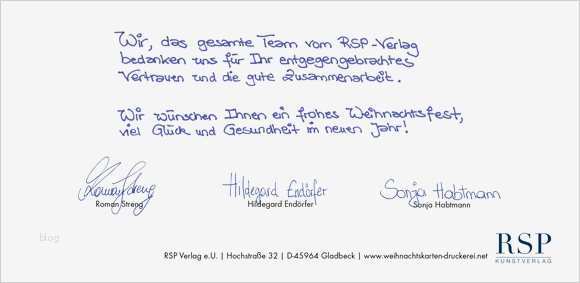 Wir, das gesamte Team vom RSP-Verlag
bedanken uns für Ihr entgegengebrachtes
Vertrauen und die gute Zusammenarbeit.
Wir wünschen Ihnen ein frohes Weihnachtsfest,
viel Glück und Gesundheit im neuen Jahr!
Roman Streng Hildegard Endörfer Sonja Habtmann
Roman Streng Hildegard Endörfer Sonja Habtmann
blog
RSP Verlag e.U. | Hochstraße 32 | D-45964 Gladbeck | www.weihnachtskarten-druckerei.net
RSP
KUNSTVERLAG